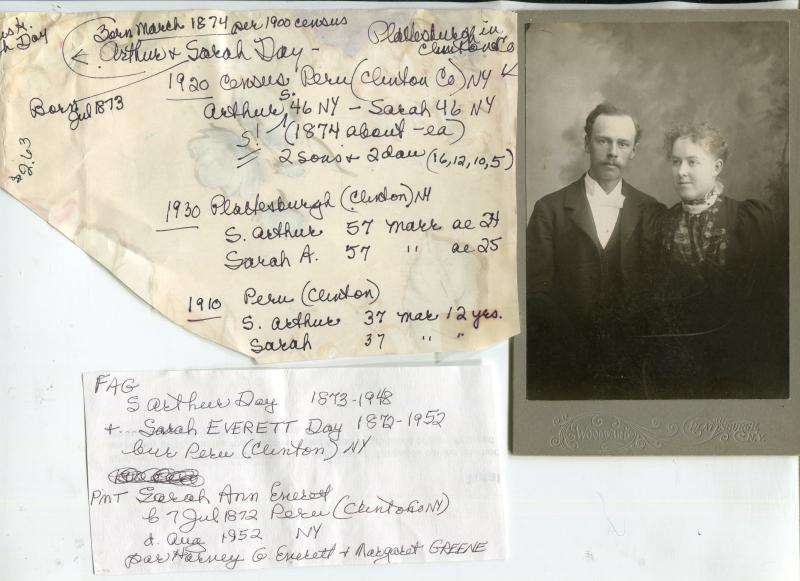 h Day
Born March 1874 per 1900 census
< Arthur & Sarah Day -
Plattsburgh in
Clinton Co
1920 Census Peru (Clinton Co) NY
Born
Jul 1873
Arthur S. 46 NY - Sarah 46 NY
S! (1874 about - ea)
2 sons & 2 dau (16, 12, 10, 5)
$2.63
1930 Plattsburgh (Clinton) NY
S. Arthur 57 marr ae 24
Sarah A. 57 " ae 25
1910 Peru (Clinton)
S. Arthur 37 mar 12 yrs.
Sarah 37 " "
FAG
S Arthur Day 1873-1948
+ Sarah EVERETT Day 1872-1952
bur Peru (Clinton) NY
PMT Sarah Ann Everett
b 7 Jul 1872 Peru (Clinton NY)
d. Aug 1952 NY
par Harvey G Everett & Margaret GREENE
Woodward
Plattsburgh,
N.Y.